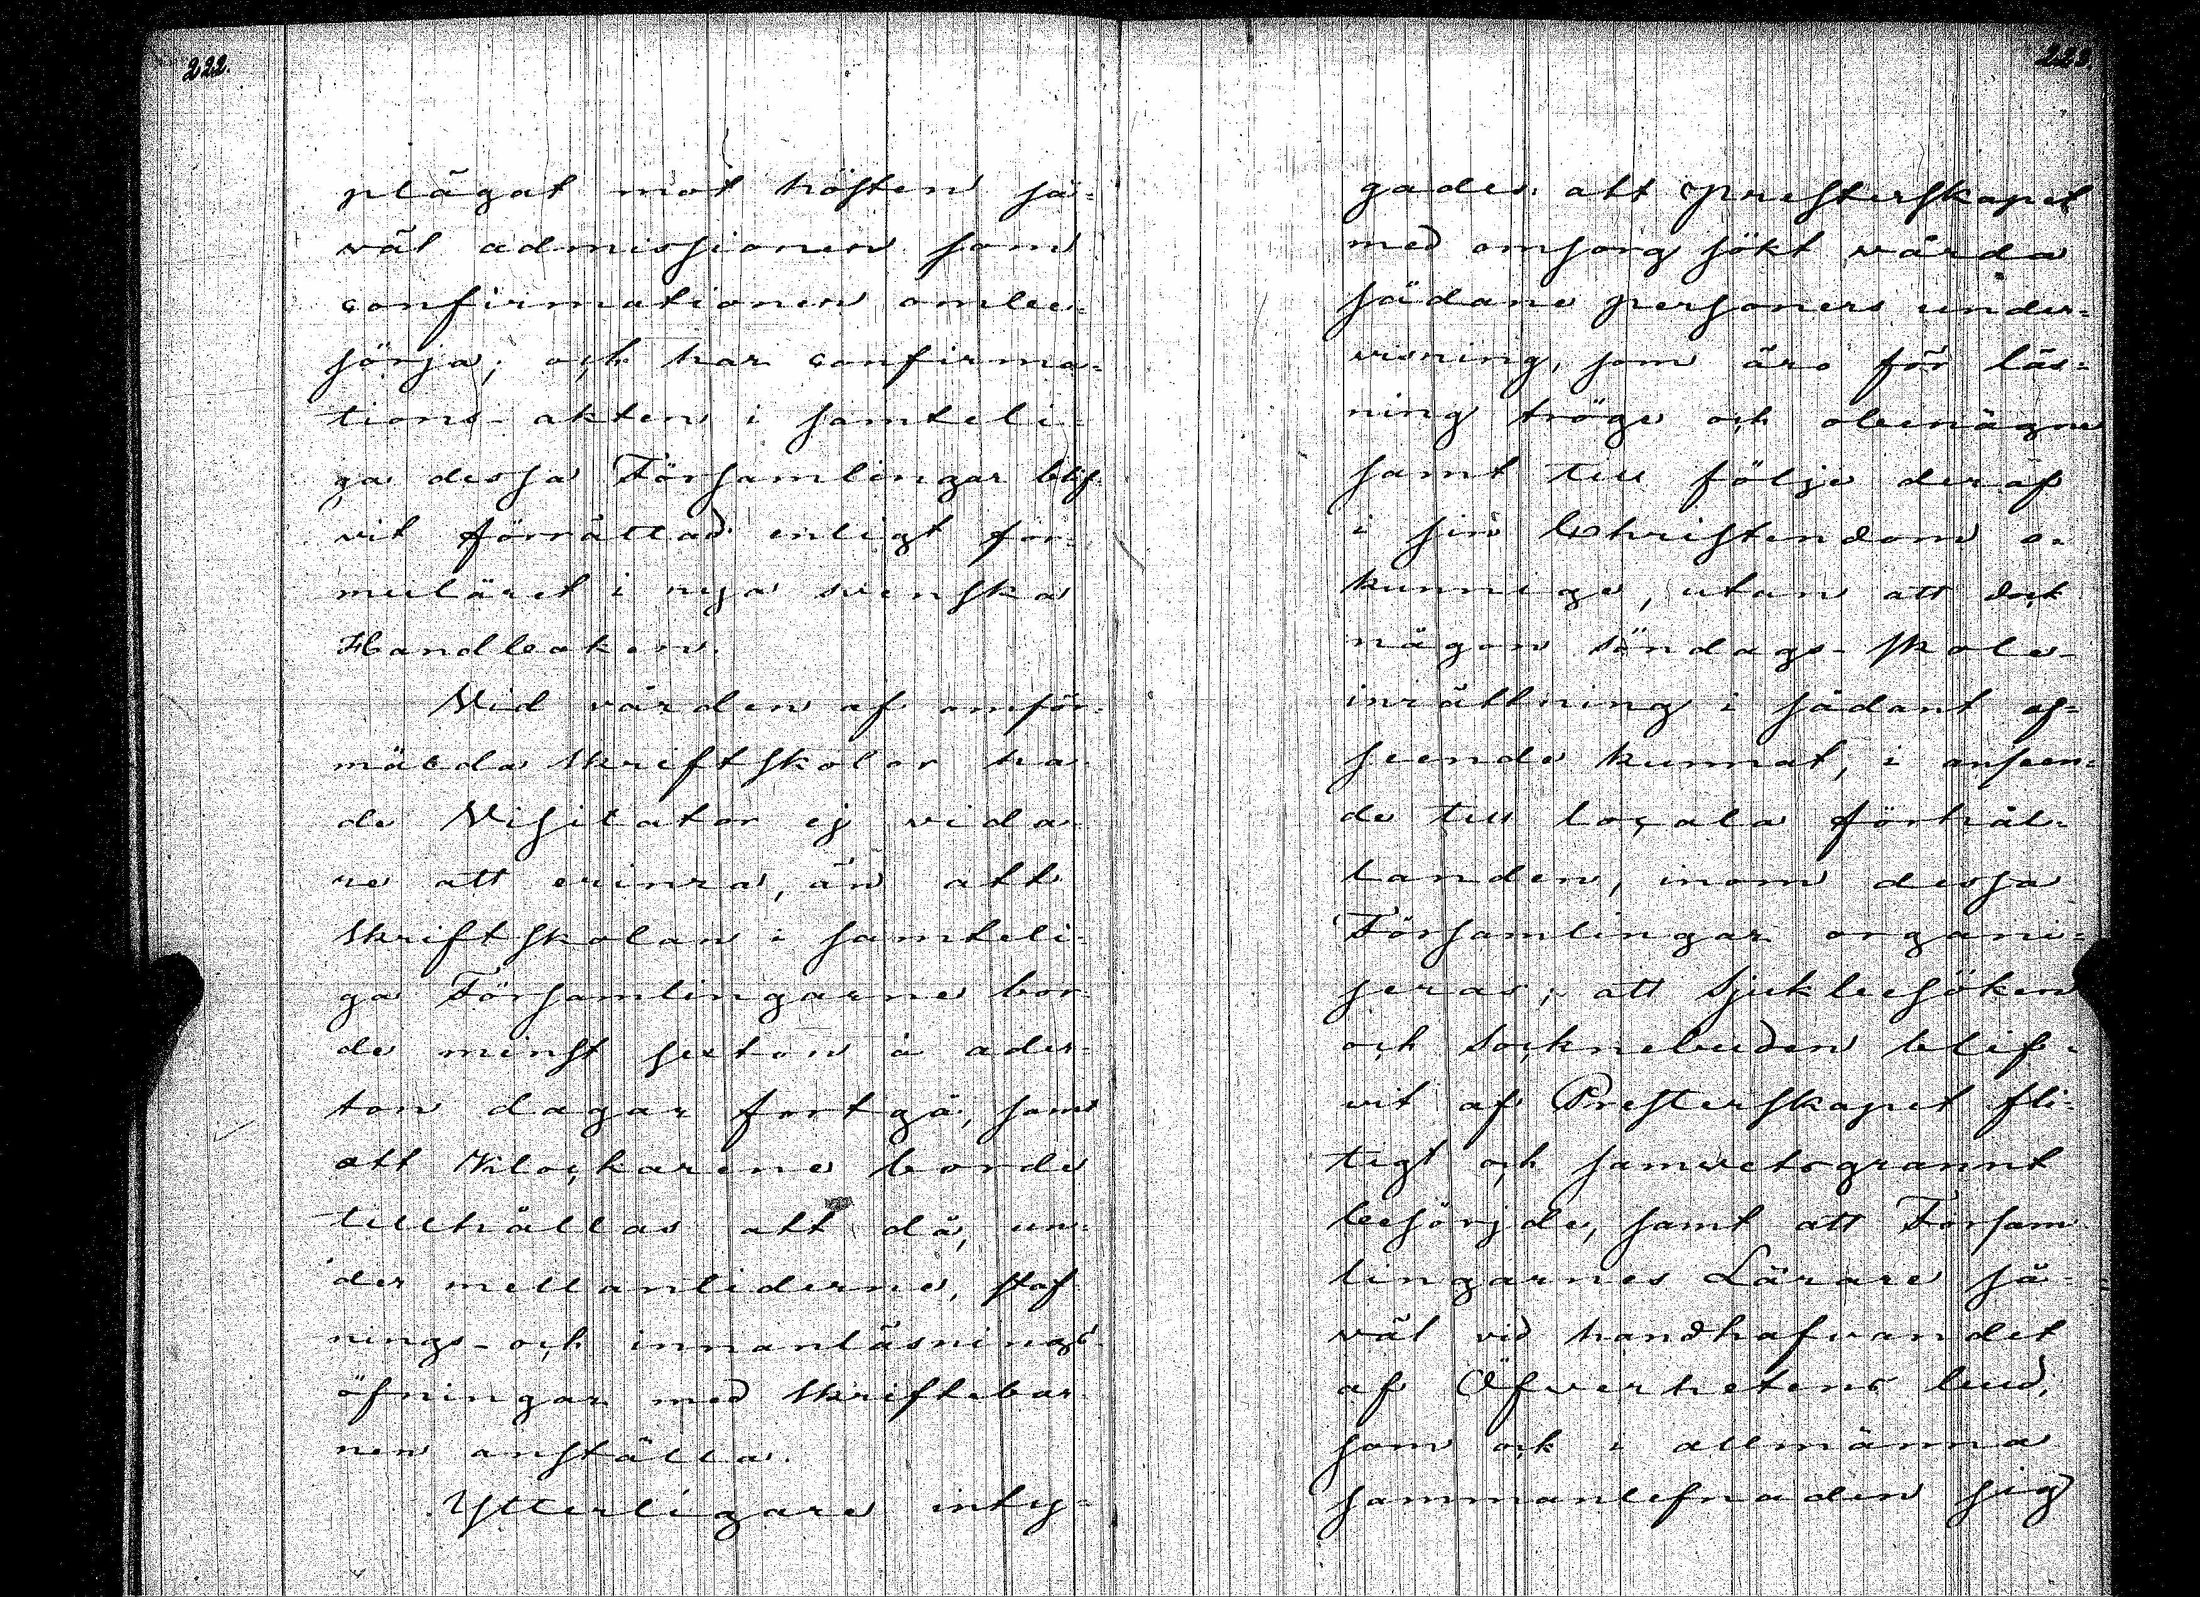 222.
plägat mot hösten så-
väl admissionen som
confirmationen ombe-
sörja; och har confirma-
tions-akten i samteli-
ga dessa Församlingar blif-
vit förrättad enligt for-
muläret i nya svenska
Handboken.
Vid vården af omför-
mälda Skriftskolor ha-
de Visitator ej vida-
re att erinra, än att
Skriftskolan i samteli-
ga Församlingarne bor-
de minst sexton à ader-
ton dagar fortgå, samt
att Klockarene borde
tillhållas att då, un-
der mellantiderne, staf-
nings- och innanläsnings-
öfningar med Skriftebar-
nen anställa.
Ytterligare inty-
gades: att Presterskapet
med omsorg sökt vårda
sådane personers under-
visning, som äro för läs-
ning tröge och obenägne
samt till följe deraf
i sin Christendom o-
kunnige, utan att dock
någon Söndags-Skole-
inrättning i sådant af-
seende kunnat, i anseen-
de till locala förhål-
landen, inom dessa
Församlingar organi-
seras; att Sjukbesöken
och Socknebuden blif-
vit af Presterskapet fli-
tigt och samvetsgrannt
besörjde, samt att Försam-
lingarnes Lärare så-
väl vid handhafvandet
af Öfverhetens bud,
som ock i allmänna
sammanlefnaden sig